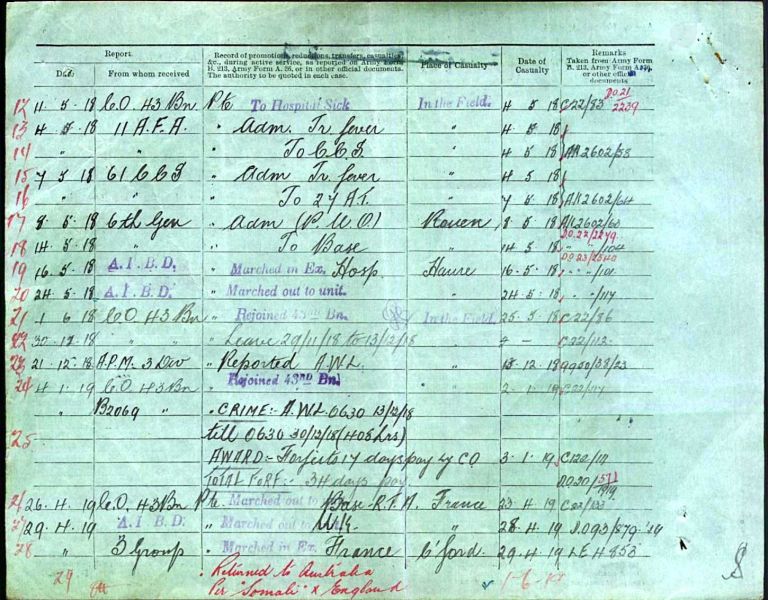 Report.
Record of promotions, reductions, transfers, casualties,
&c., during active service, as reported on Army Form
B. 213, Army Form A. 36, or in other official documents.
The authority to be quoted in each case.
Place of Casualty
Date of
Casualty
Remarks
Taken from Army Form
B. 213, Army Form A. 36,
or other official
documents
Date
From whom received
DO.21
2239
12 11 5 18 C.O 43 Bn Pte To Hospital Sick In the Field. 4 5 18 C22/83
13 4 5 18 11 A.F.A. " Adm. Tr. fever " 4 5 18
14 " " " To CCS " 4 5 18 AR2602/58
15 7 5 18 61 CCS " Adm Tr. fever 4 5 18
16 " " " To 27 AT. 7 5 18 A112602/64
17 8 5 18 6th Gen " Adm (P.U.O) Rouen 8 5 18 A112602/60
DO.22/2279
18 14 5 18 " " To Base " 14 5 18 " " /104
DO 23/2340
19 16 5 18 A.I.B.D. " Marched in Ex. Hosp. Havre 16 5 18 " " /101
20 24 5 18 A.I.B.D. " Marched out to unit. " 24 5 18 " " /117
21 1 6 18 C.O 43 Bn " Rejoined 43rd Bn. In the Field 25 5 18 C22/86
22 30 12 18 " " Leave 29/11/18 to 13/12/18 C22/112
23 21 12 18 A.P.M. 3 Div " Reported A.W.L. " 13 12 18
24 4 1 19 C.O 43 Bn Rejoined 43rd Bn. 2 1 19 C22/114
" B2069 " CRIME:- A.W.L. 0630 13/12/18
25 till 0630 30/12/18 (408 hrs)
AWARD:- Forfeits 17 days pay by CO 3 1 19 C120/17
TOTAL FORF:- 34 days pay DO30/571
1919
26 4 19 C.O. 43 Bn Pte Marched out to Base R.T.A. France 23 4 19
29 4 19 A.I.B.D. " Marched out to U.K. " 28 4 19 1.093/879 '19
28 " 3 Group " Marched in Ex. France C'ford. 29 4 19 LEH 853
29 Returned to Australia 1-6-19
Per "Somali" x England